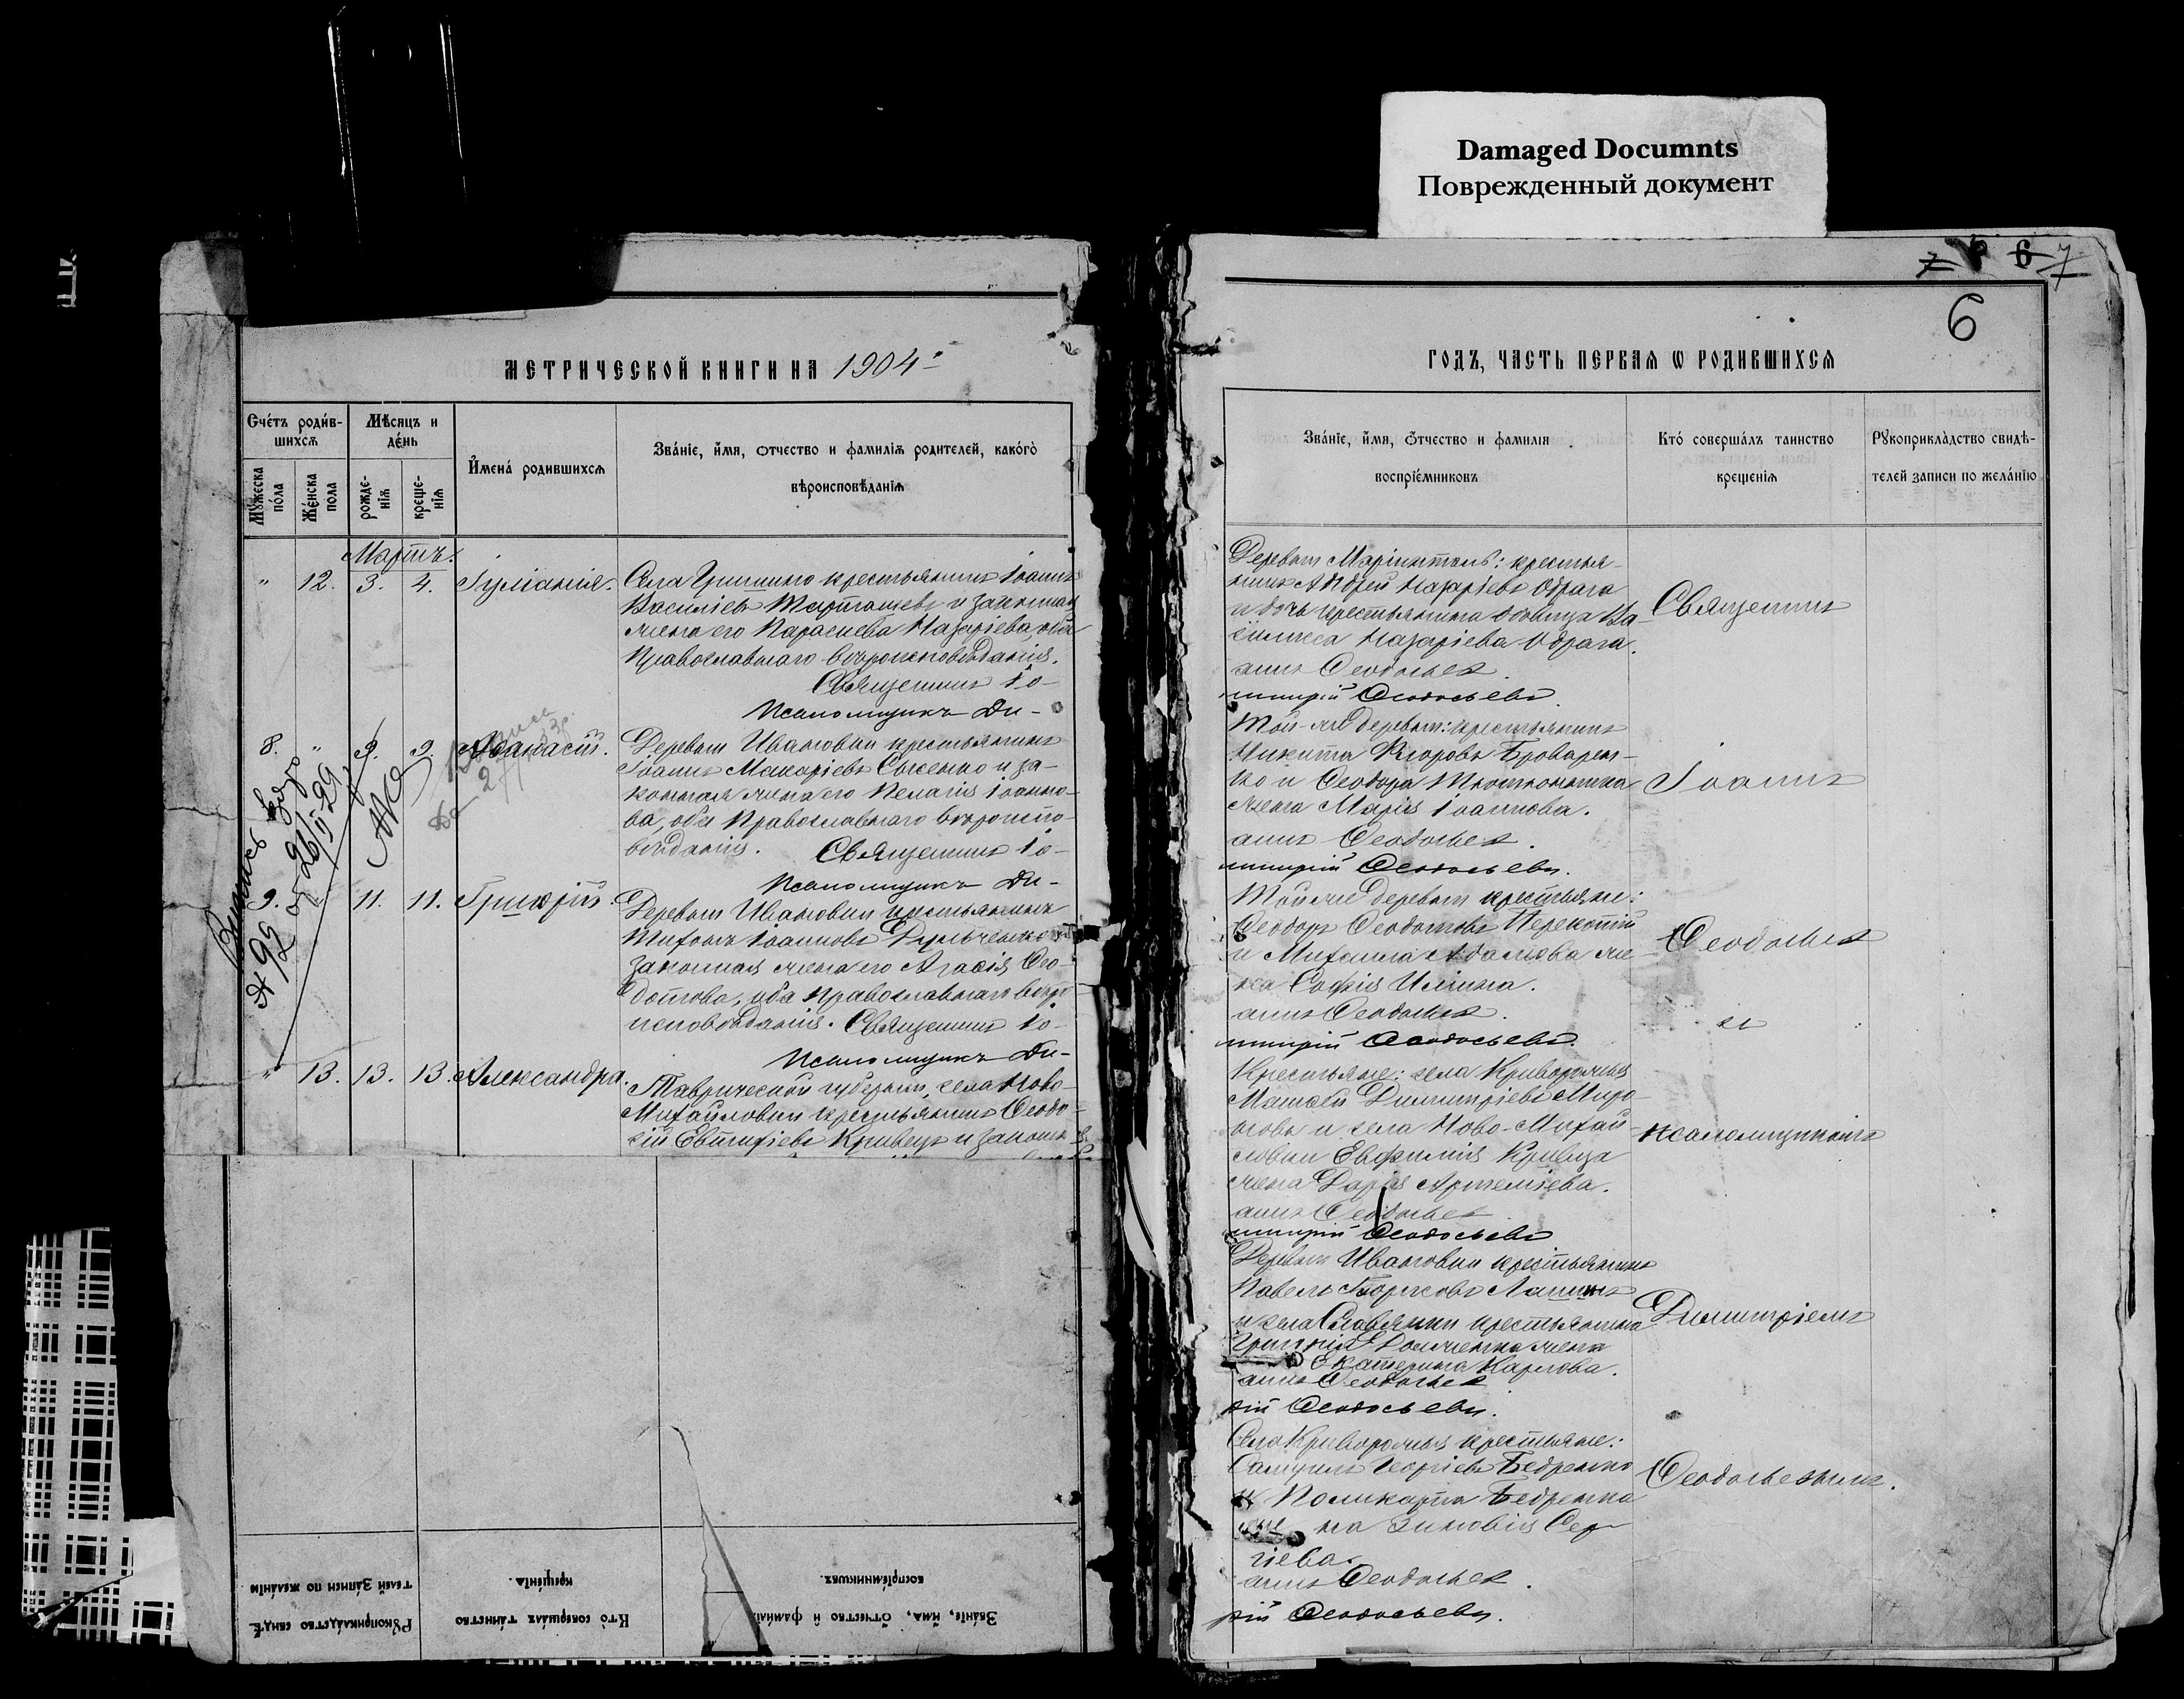 Damaged Documnts
Поврежденный документ
7 6 7
6
МЕТРИЧЕСКОЙ КНИГИ НА 1904
Счéтъ роди́в-
шихсѧ
Мѣсяцъ и
де́нь
Мꙋжеска
по́ла
Же́нска
пола
рожде-
нїѧ
креще-
нїѧ
И́мена́ родившихсѧ
Зва́нїе, и́мѧ, ѻтчество и фамилїѧ родителей, како́гѡ
вѣроисповѣ́данїѧ
Мартъ.
" 12. 3. 4. Іуліанія.
Села Гришино крестьянинъ Іоаннъ
Василіевъ и законная
жена его Параскева Назаріева, оба
Православнаго вѣроисповѣданія.
Священникъ Іо-
Псаломщикъ Ди-
8. " 9. 9. Аѳанасій.
Деревни Ивановки крестьянинъ
Іоаннъ Макаріевъ и за-
конная жена его Пелагія Іоанно-
ва, оба Православнаго вѣроиспо-
вѣданія. Священникъ Іо-
Псаломщикъ Ди-
9. 11. 11. Григорій.
Деревни Ивановки крестьянинъ
Іоанновъ и
законная жена его Агаѳія Ѳео-
дотова, оба Православнаго вѣро-
исповѣданія. Священникъ Іо-
Псаломщикъ Ди-
" 13. 13. 13. Александра.
Таврической губерніи, села Ново-
Михайловки крестьянинъ Ѳеодо-
сій Евтихіевъ Кривецъ и законн
Рꙋкоприкла́дство свидѣ́-
телей за́писи по жела́нїю
Кто̀ соверша́лъ та́инство
креще́нїѧ.
Зва́нїе, и́мѧ, ѻ́тчество и́ фами́лї
воспрїе́мниковъ.
ГОДЪ, ЧАСТЬ ПЕРВАѦ Ѡ РОДИВШИХСѦ
Зва́нїе, и́мѧ, ѻ́тчество и фамилїѧ
воспрїе́мниковъ
Кто́ соверша́лъ таинство
крещенїѧ
Рꙋкоприкла̀дство свидѣ-
телей записи по жела́нїю
крестья-
нинъ Андрей Назаріевъ Обрага
и дочь крестьянина
Назаріева Обрага.
аннъ Ѳеодосьев
митрій Ѳеодосьевъ.
Священникъ
Той-же деревни: крестьянинъ
Никита Егоровъ Броварен-
ко и Ѳеодора
жена Марія Іоаннова.
аннъ Ѳеодосьев
митрій Ѳеодосьевъ.
Іоаннъ
Той-же деревни крестьяне:
Ѳеодоръ Ѳеодотовъ
и Михаила Адамова же-
на Софія Ильина.
аннъ Ѳеодосьев
митрій Ѳеодосьевъ.
Ѳеодосьев
съ
Крестьяне: села Криворожья
Димитріевъ Миро-
новъ и села Ново-Михай-
ловки Евфимія Кривца
жена Дарія Артеміева.
аннъ Ѳеодосьев
митрій Ѳеодосьевъ
псаломщикомъ
Деревни Ивановки крестьянинъ
Павелъ Борисовъ
и села Славянки крестьянина
Григорія жена
Екатерина Карпова.
аннъ Ѳеодосьев
рій Ѳеодосьевъ.
Димитріемъ
Села Криворожья крестьяне:
Самуилъ Георгіевъ Бедренко
и Поликарпа Бедренка
же на Зиновія Сер-
гіева.
аннъ Ѳеодосьев.
рій Ѳеодосьевъ.
Ѳеодосьевымъ.